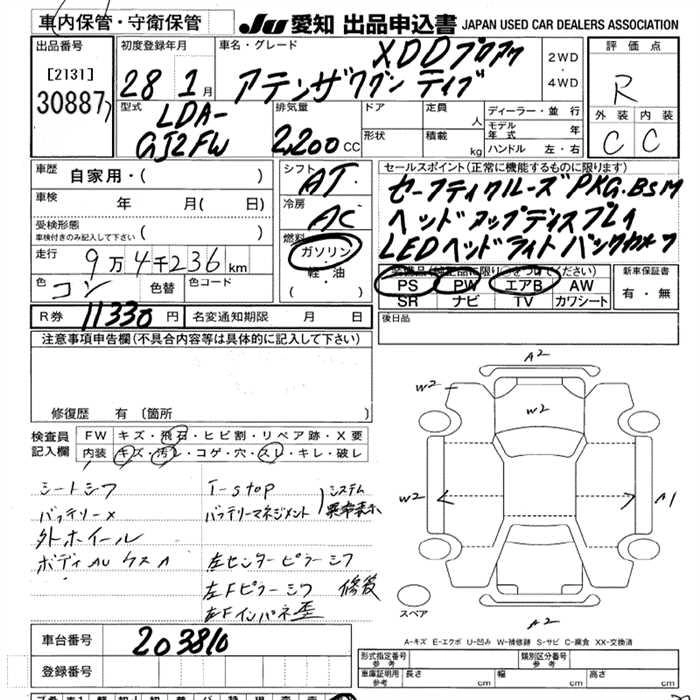 車内保管・守衛保管
JU 愛知 出品申込書 JAPAN USED CAR DEALERS ASSOCIATION
出品番号
[2131]
30887
初度登録年月
28 1月
車名・グレード
XDD プロアク
アテンザワゴン ティブ
2WD
・
4WD
評価点
R
外装 内装
C C
型式
LDA-
GJ2FW
排気量
2,200 CC
ドア
形状
定員 人
積載 kg
ディーラー・並行
モデル年式 年
ハンドル 左・右
車歴
自家用・( )
車検
年 月( 日)
受検形態
車検付きのみ記入して下さい ( )
走行
9万4千236km
色
コン
色替
色コード
シフト
AT.
冷房
AC
燃料
ガソリン
・
軽・油
( )
セールスポイント(正常に機能するものに限ります)
セーフティクルーズPKG.BSM
ヘッドアップディスプレイ
LEDヘッドライト バックカメラ
PS PW エアB AW
SR ナビ TV カワシート
新車保証書
有・無
R券 11330円
名変通知期限 月 日
後日品
注意事項申告欄(不具合内容等は具体的に記入して下さい)
修復歴 有〔箇所 〕
検査員
記入欄
FW キズ・飛石・ヒビ割・リペア跡・X要
内装 キズ・汚レ・コゲ・穴・スレ・キレ・破レ
シートシワ
バッテリーX
外ホイール
I-stop
バッテリーマネジメント
システム
異常表示
左センターピラーシワ
左Fピラーシワ 修後
左Fインパネ歪
A2
W2
W2
W2
A1
A2
スペア
A-キズ E-エクボ U-凹み W-補修跡 S-サビ C-腐食 XX-交換済
車台番号
203810
登録番号
形式指定番号
参考
類別区分番号
参考
車庫証明用
参考
長さ cm
幅 cm
高さ cm